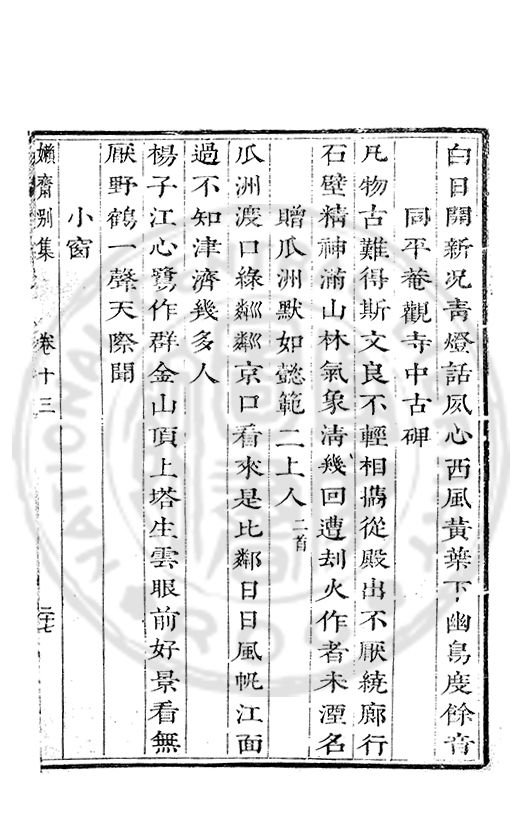 白日開新况靑燈話夙心西風黃葉下幽鳥度餘音
同平菴觀寺中古碑
凡物古難得斯文良不輕相攜從殿出不厭繞廊行
石壁精神滿山林氣象淸幾回遭刦火作者未湮名
贈瓜洲默如懿範二上人二首
瓜洲渡口綠粼粼京口看來是比鄰日日風帆江面
過不知津濟幾多人
楊子江心鷺作群金山頂上塔生雲眼前好景看無
厭野鶴一聲天際聞
小窗
嬾齋别集
卷十三
二十七